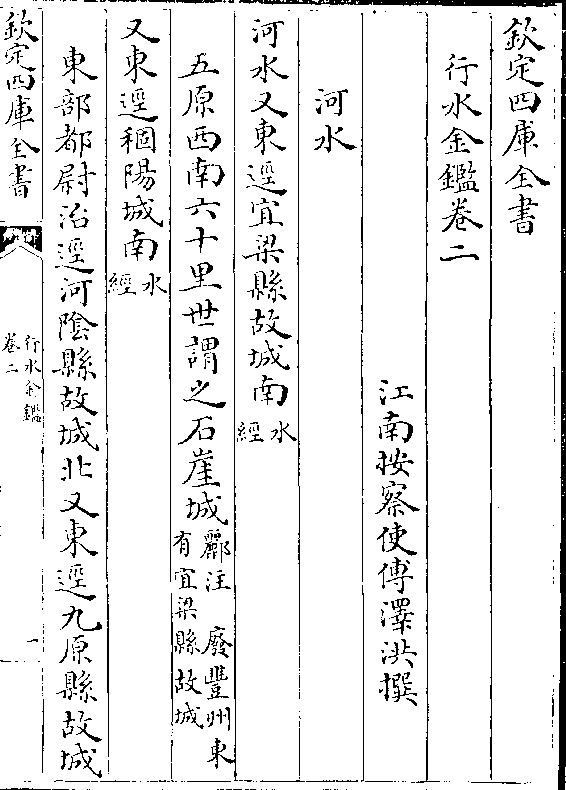 欽定四庫全書
行水金鑑卷二
江南按察使傅澤洪撰
河水
河水又東逕宜梁縣故城南水經
五原西南六十里世謂之石崖城酈注 廢豐州東有宜梁縣故城
又東逕稒陽城南水經
東部都尉治逕河陰縣故城北又東逕九原縣故城
欽定四庫全書
行水金鑑
卷二
一